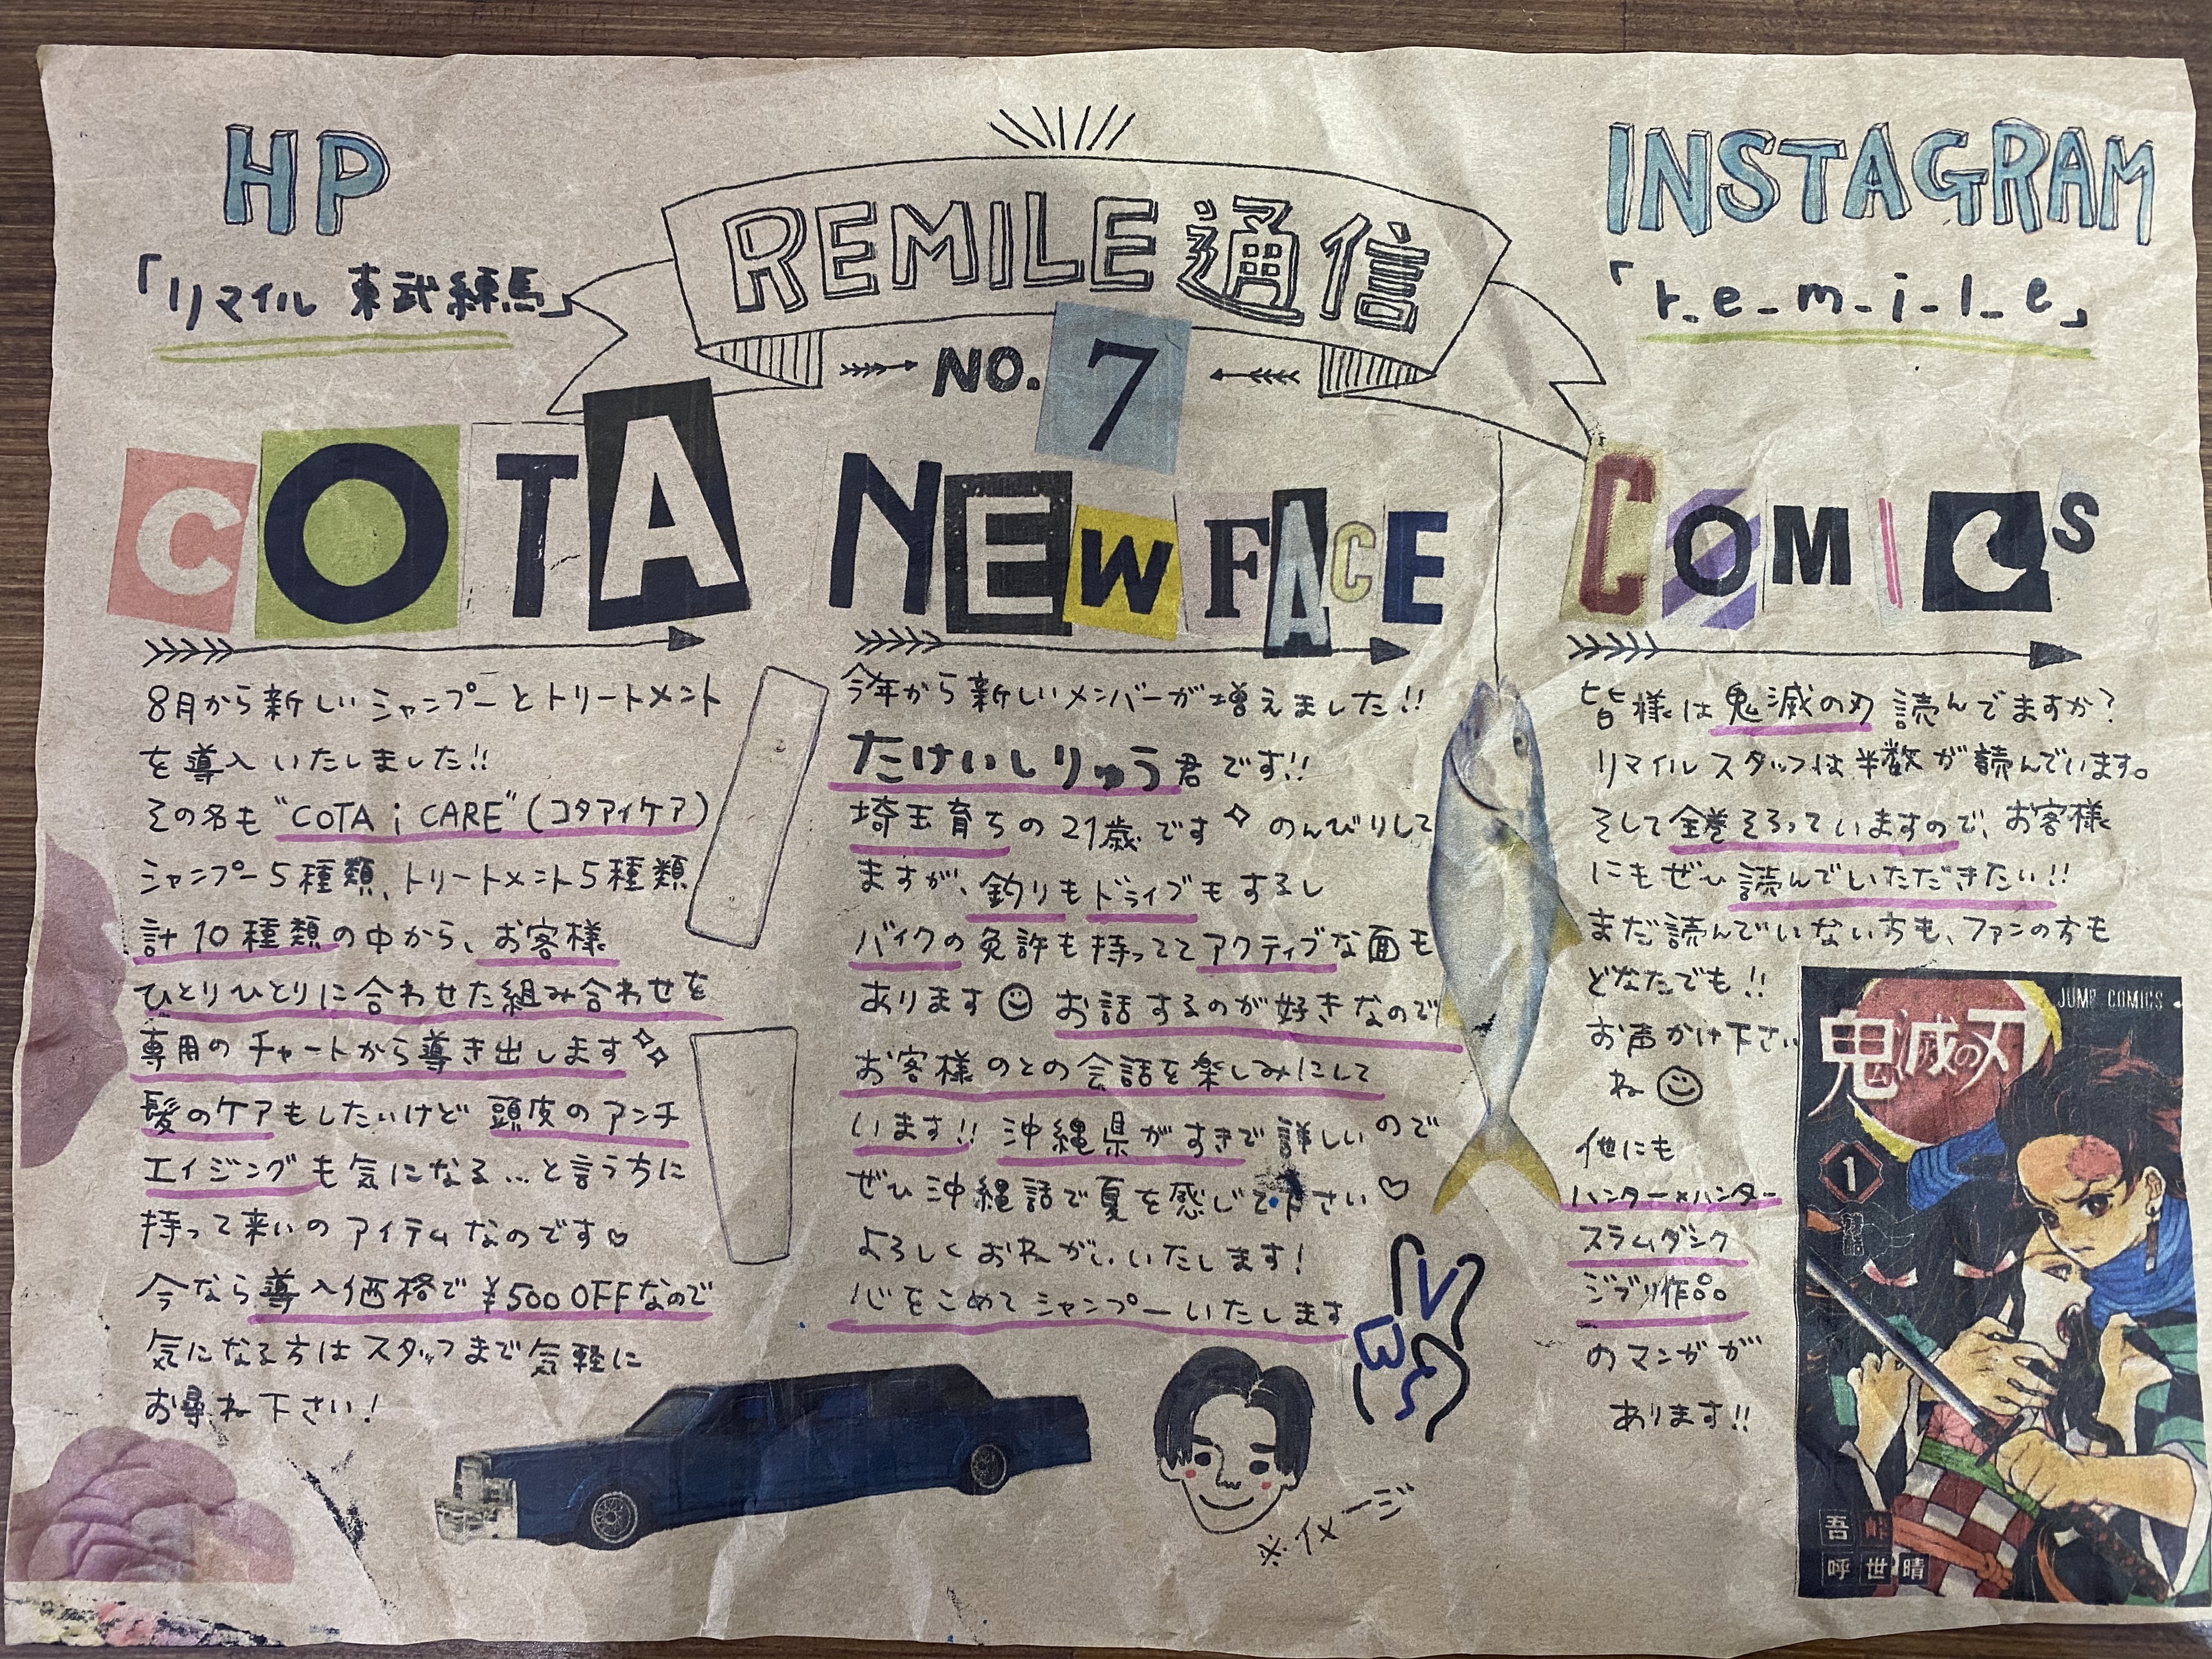 HP
「リマイル 東武練馬」
REMILE通信
NO.7
INSTAGRAM
「r_e_m_i_l_e」
COTA
8月から新しいシャンプーとトリートメント
を導入いたしました!!
その名も"COTA i CARE"(コタアイケア)
シャンプー5種類、トリートメント5種類
計10種類の中から、お客様
ひとりひとりに合わせた組み合わせを
専用のチャートから導き出します
髪のケアもしたいけど頭皮のアンチ
エイジングも気になる...と言うちに
持って来いのアイテムなのです♡
今なら導入価格で¥500OFFなので
気になる方はスタッフまで気軽に
お尋ね下さい!
NEW FACE
今年から新しいメンバーが増えました!!
たけいしりゅう君です!!
埼玉育ちの21歳です✧ のんびりして
ますが、釣りもドライブもするし
バイクの免許も持っててアクティブな面も
あります☺ お話するのが好きなので
お客様のとの会話を楽しみにして
います!! 沖縄県がすきで詳しいので
ぜひ沖縄話で夏を感じて下さい♡
よろしくおねがいいたします!
心をこめてシャンプーいたします
※イメージ
COMICS
皆様は鬼滅の刃読んでますか?
リマイルスタッフは半数が読んでいます。
そして全巻そろっていますので、お客様
にもぜひ読んでいただきたい!!
まだ読んでいない方も、ファンの方も
どなたでも!!
お声かけ下さい
ね☺
他にも
ハンター×ハンター
スラムダンク
ジブリ作品
のマンガが
あります!!
JUMP COMICS
鬼滅の刃
1
吾峠
呼世晴